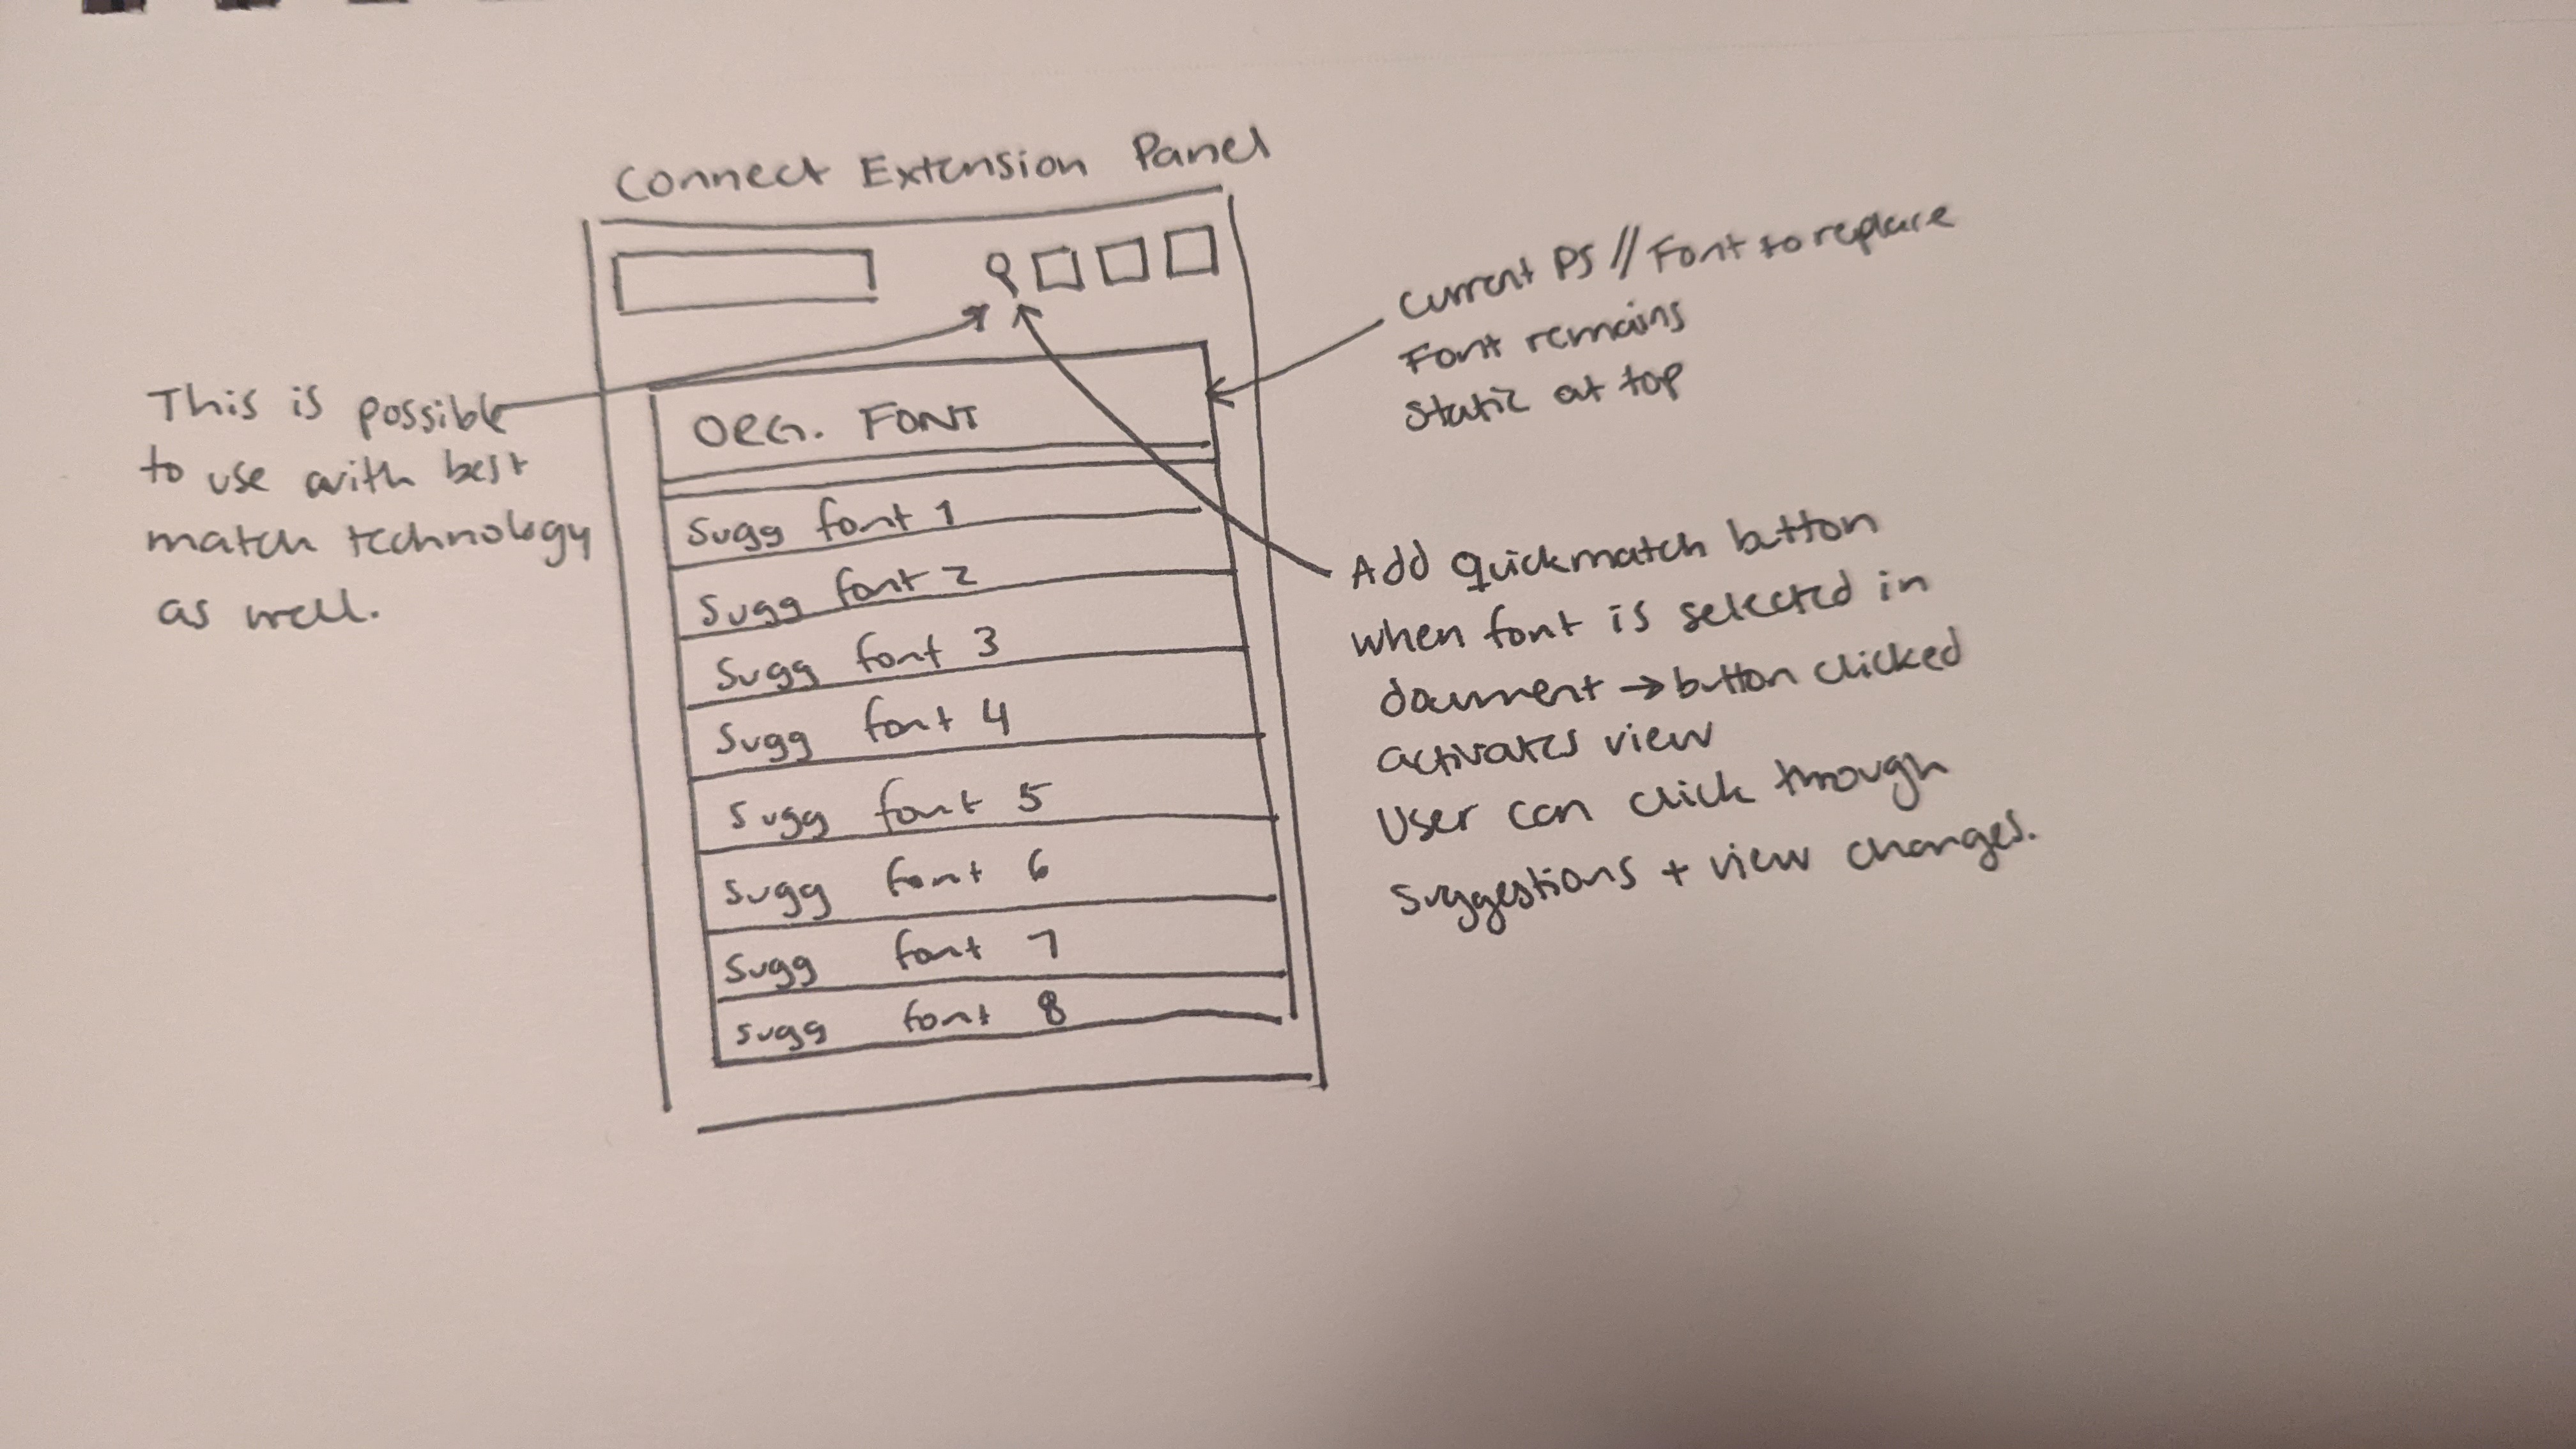 Connect Extension Panel
ORG. FONT
Sugg font 1
Sugg font 2
Sugg font 3
Sugg font 4
Sugg font 5
Sugg font 6
Sugg font 7
Sugg font 8
This is possible
to use with best
match technology
as well.
Current PS // Font to replace
Font remains
static at top
Add Quickmatch button
when font is selected in
document → button clicked
activates view
User can click through
suggestions + view changes.